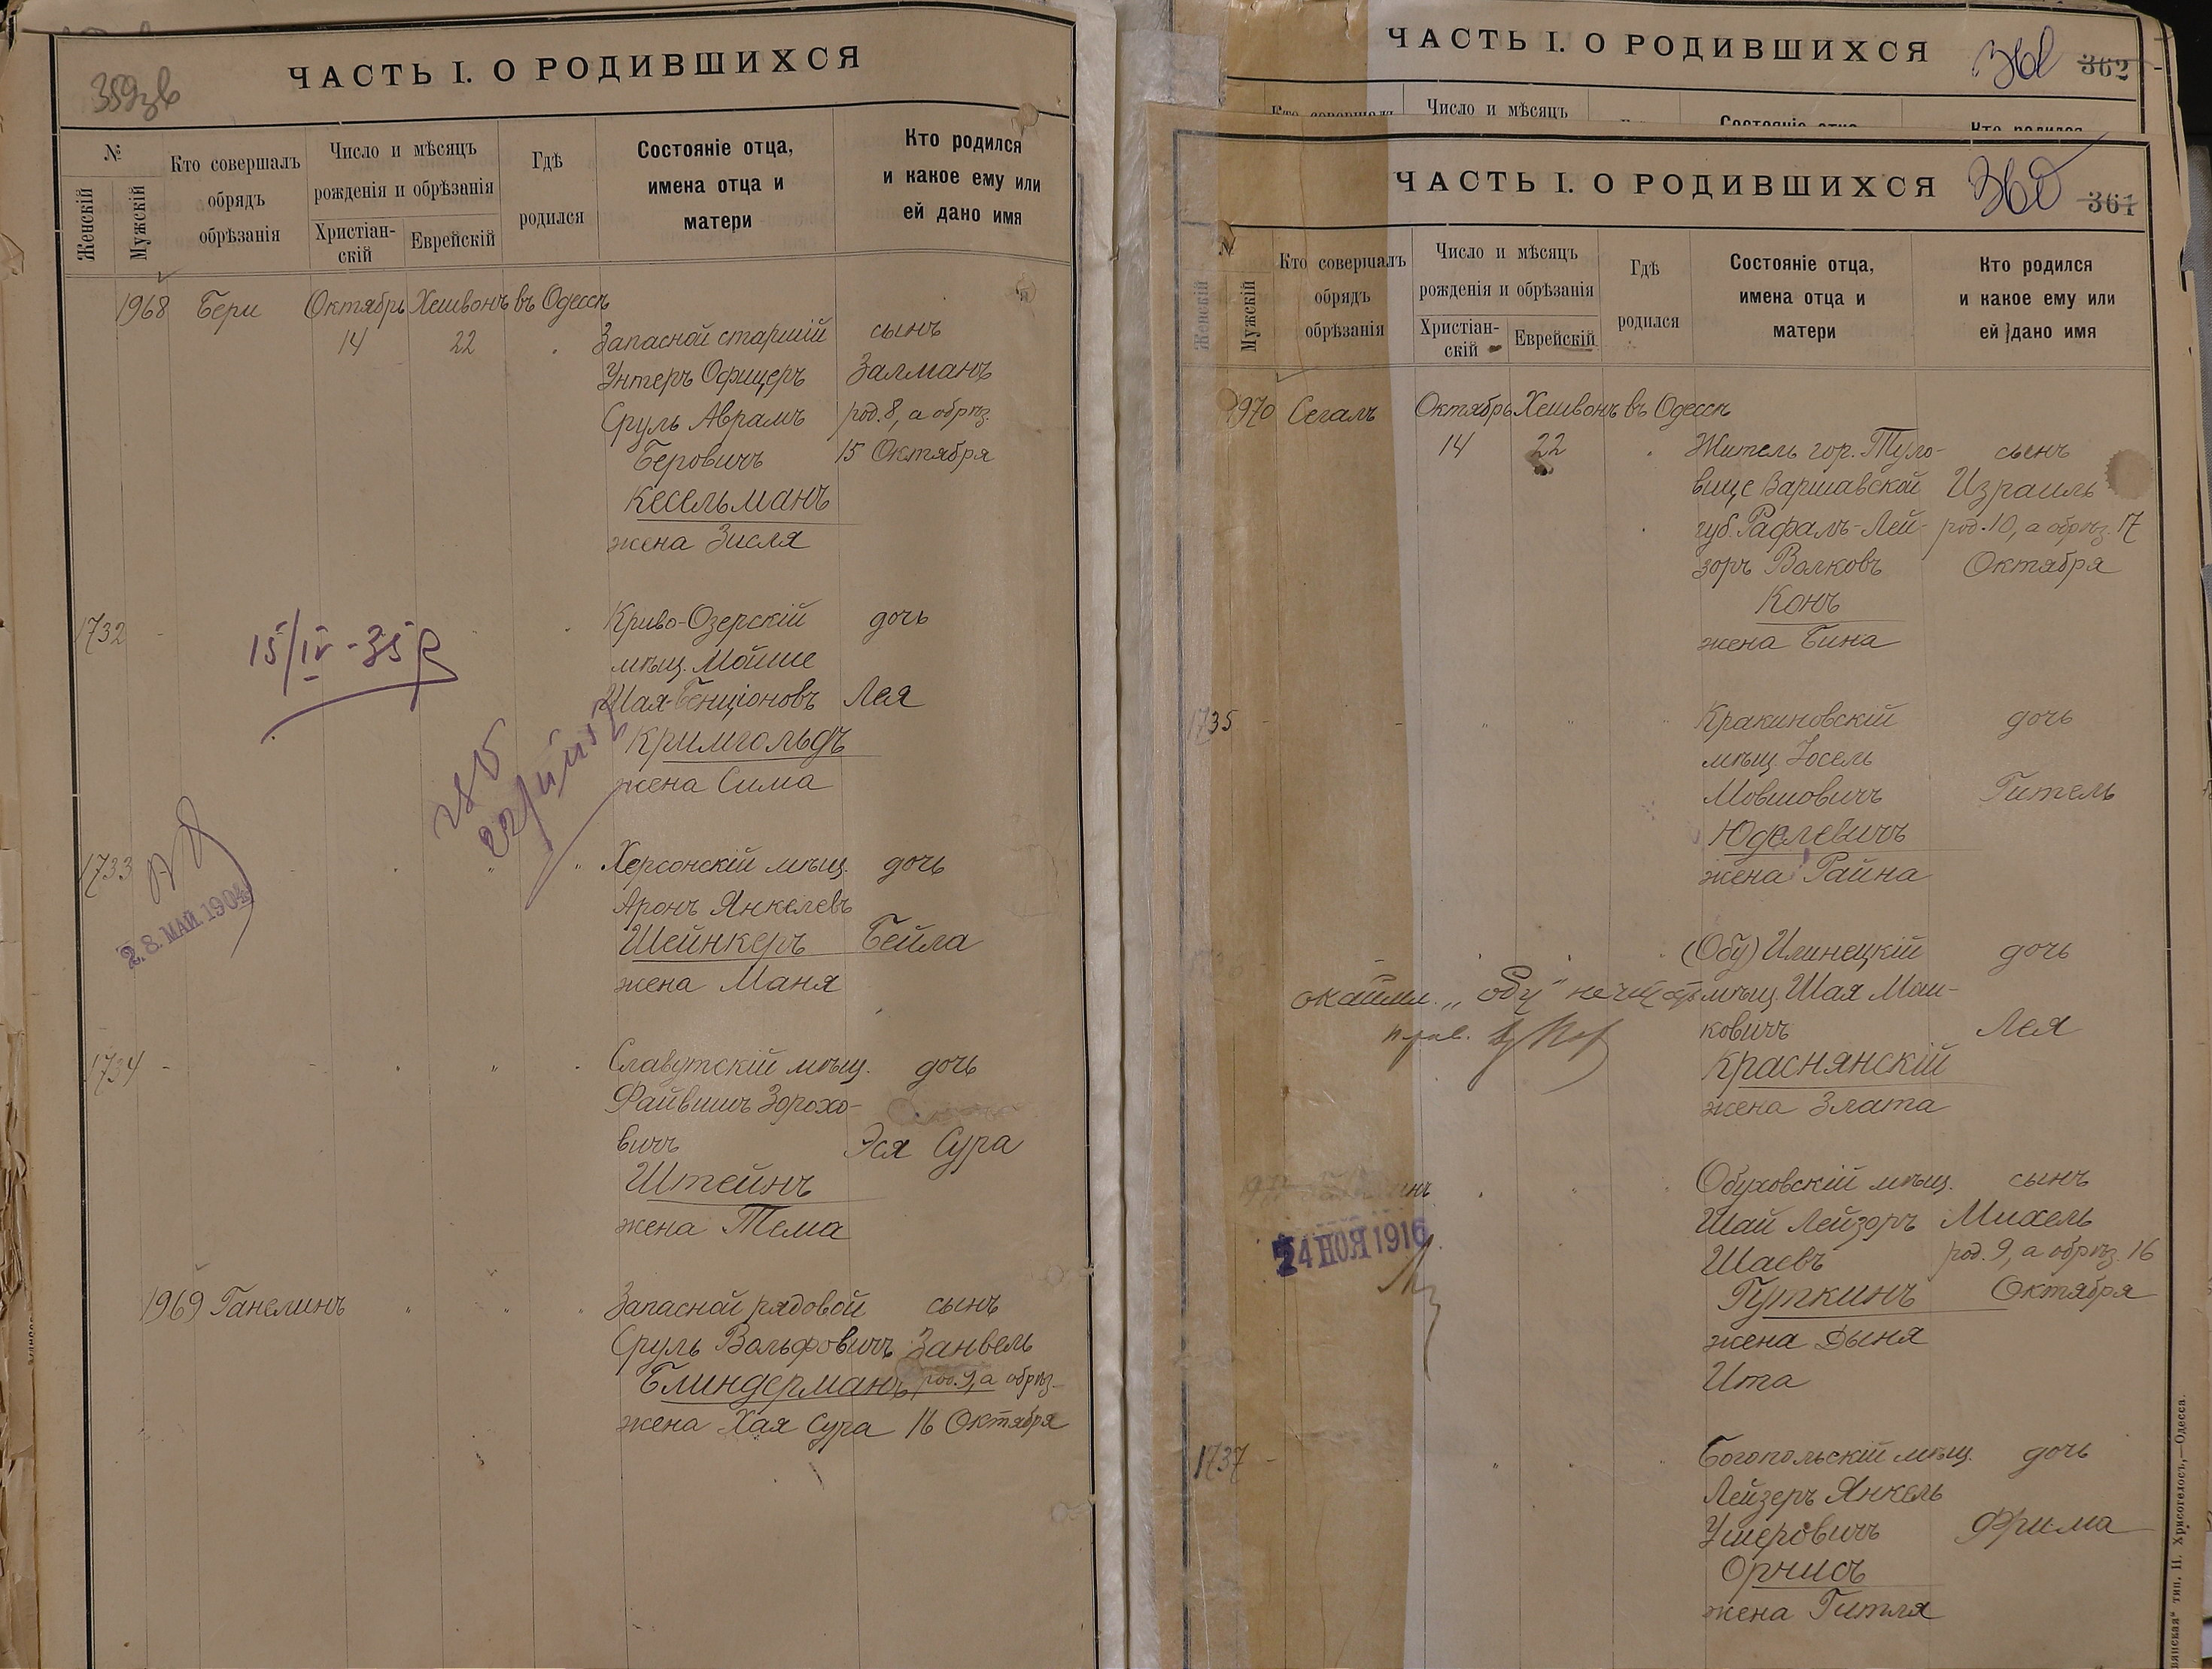 ЧАСТЬ I. О РОДИВШИХСЯ
359зв
№
Женскій
Мужскій
Кто совершалъ
обрядъ
обрѣзанія
Число и мѣсяцъ
рожденія и обрѣзанія
Христіан-
скій
Еврейскій
Гдѣ
родился
Состояніе отца,
имена отца и
матери
Кто родился
и какое ему или
ей дано имя
1968 Бери Октябрь Хешвонъ въ Одессѣ
14 22 Запасной старшій сынъ
Унтеръ Офицеръ Залманъ
Сруль Аврамъ род. 8, а обрѣз.
Беровичъ 15 Октября
Кесельманъ
жена Зисля
1732 Криво-Озерскій дочь
15/IV-35
мѣщ. Мойше
Шая-Бенціоновъ Лея
Кримгольдъ
жена Сима
1733 Херсонскій мѣщ. дочь
28. МАЙ. 1904
Аронъ Янкелевъ
Шейнкеръ Бейла
жена Маня
1734 Славутскій мѣщ. дочь
Файвишъ Зорохо-
вичъ Эся Сура
Штейнъ
жена Тема
1969 Ганелинъ Запасной рядовой сынъ
Сруль Вольфовичъ Занвель
Блиндерманъ род. 9, а обрѣз.
жена Хая Сура 16 Октября
ЧАСТЬ I. О РОДИВШИХСЯ
361 362
Кто совершалъ
Число и мѣсяцъ
Состояніе отца
Кто родился
ЧАСТЬ I. О РОДИВШИХСЯ
360 361
№
Женскій
Мужскій
Кто совершалъ
обрядъ
обрѣзанія
Число и мѣсяцъ
рожденія и обрѣзанія
Христіан-
скій
Еврейскій
Гдѣ
родился
Состояніе отца,
имена отца и
матери
Кто родился
и какое ему или
ей дано имя
1970 Сегалъ Октябрь Хешвонъ въ Одессѣ
14 22 Житель гор. Туло- сынъ
вище Варшавской Израиль
губ. Рафалъ-Лей- род. 10, а обрѣз. 17
зоръ Волковъ Октября
Конъ
жена Бина
1735 Кракиновскій дочь
мѣщ Іосель
Мовшовичъ Гитель
Юделевичъ
жена Райна
(Обу) Илинецкій дочь
мѣщ. Шая Маи-
ковичъ Лея
Краснянскій
жена Злата
Обуховскій мѣщ. сынъ
Шай Лейзоръ Михель
24 НОЯ 1916
Шаевъ род. 9, а обрѣз. 16
Гуткинъ Октября
жена Дыня
Ита
1737 Богопольскій мѣщ. дочь
Лейзеръ Янкель
Ушеровичъ Фрима
Орчисъ
жена Гитля
тип. И. Хрисогелосъ,—Одесса.